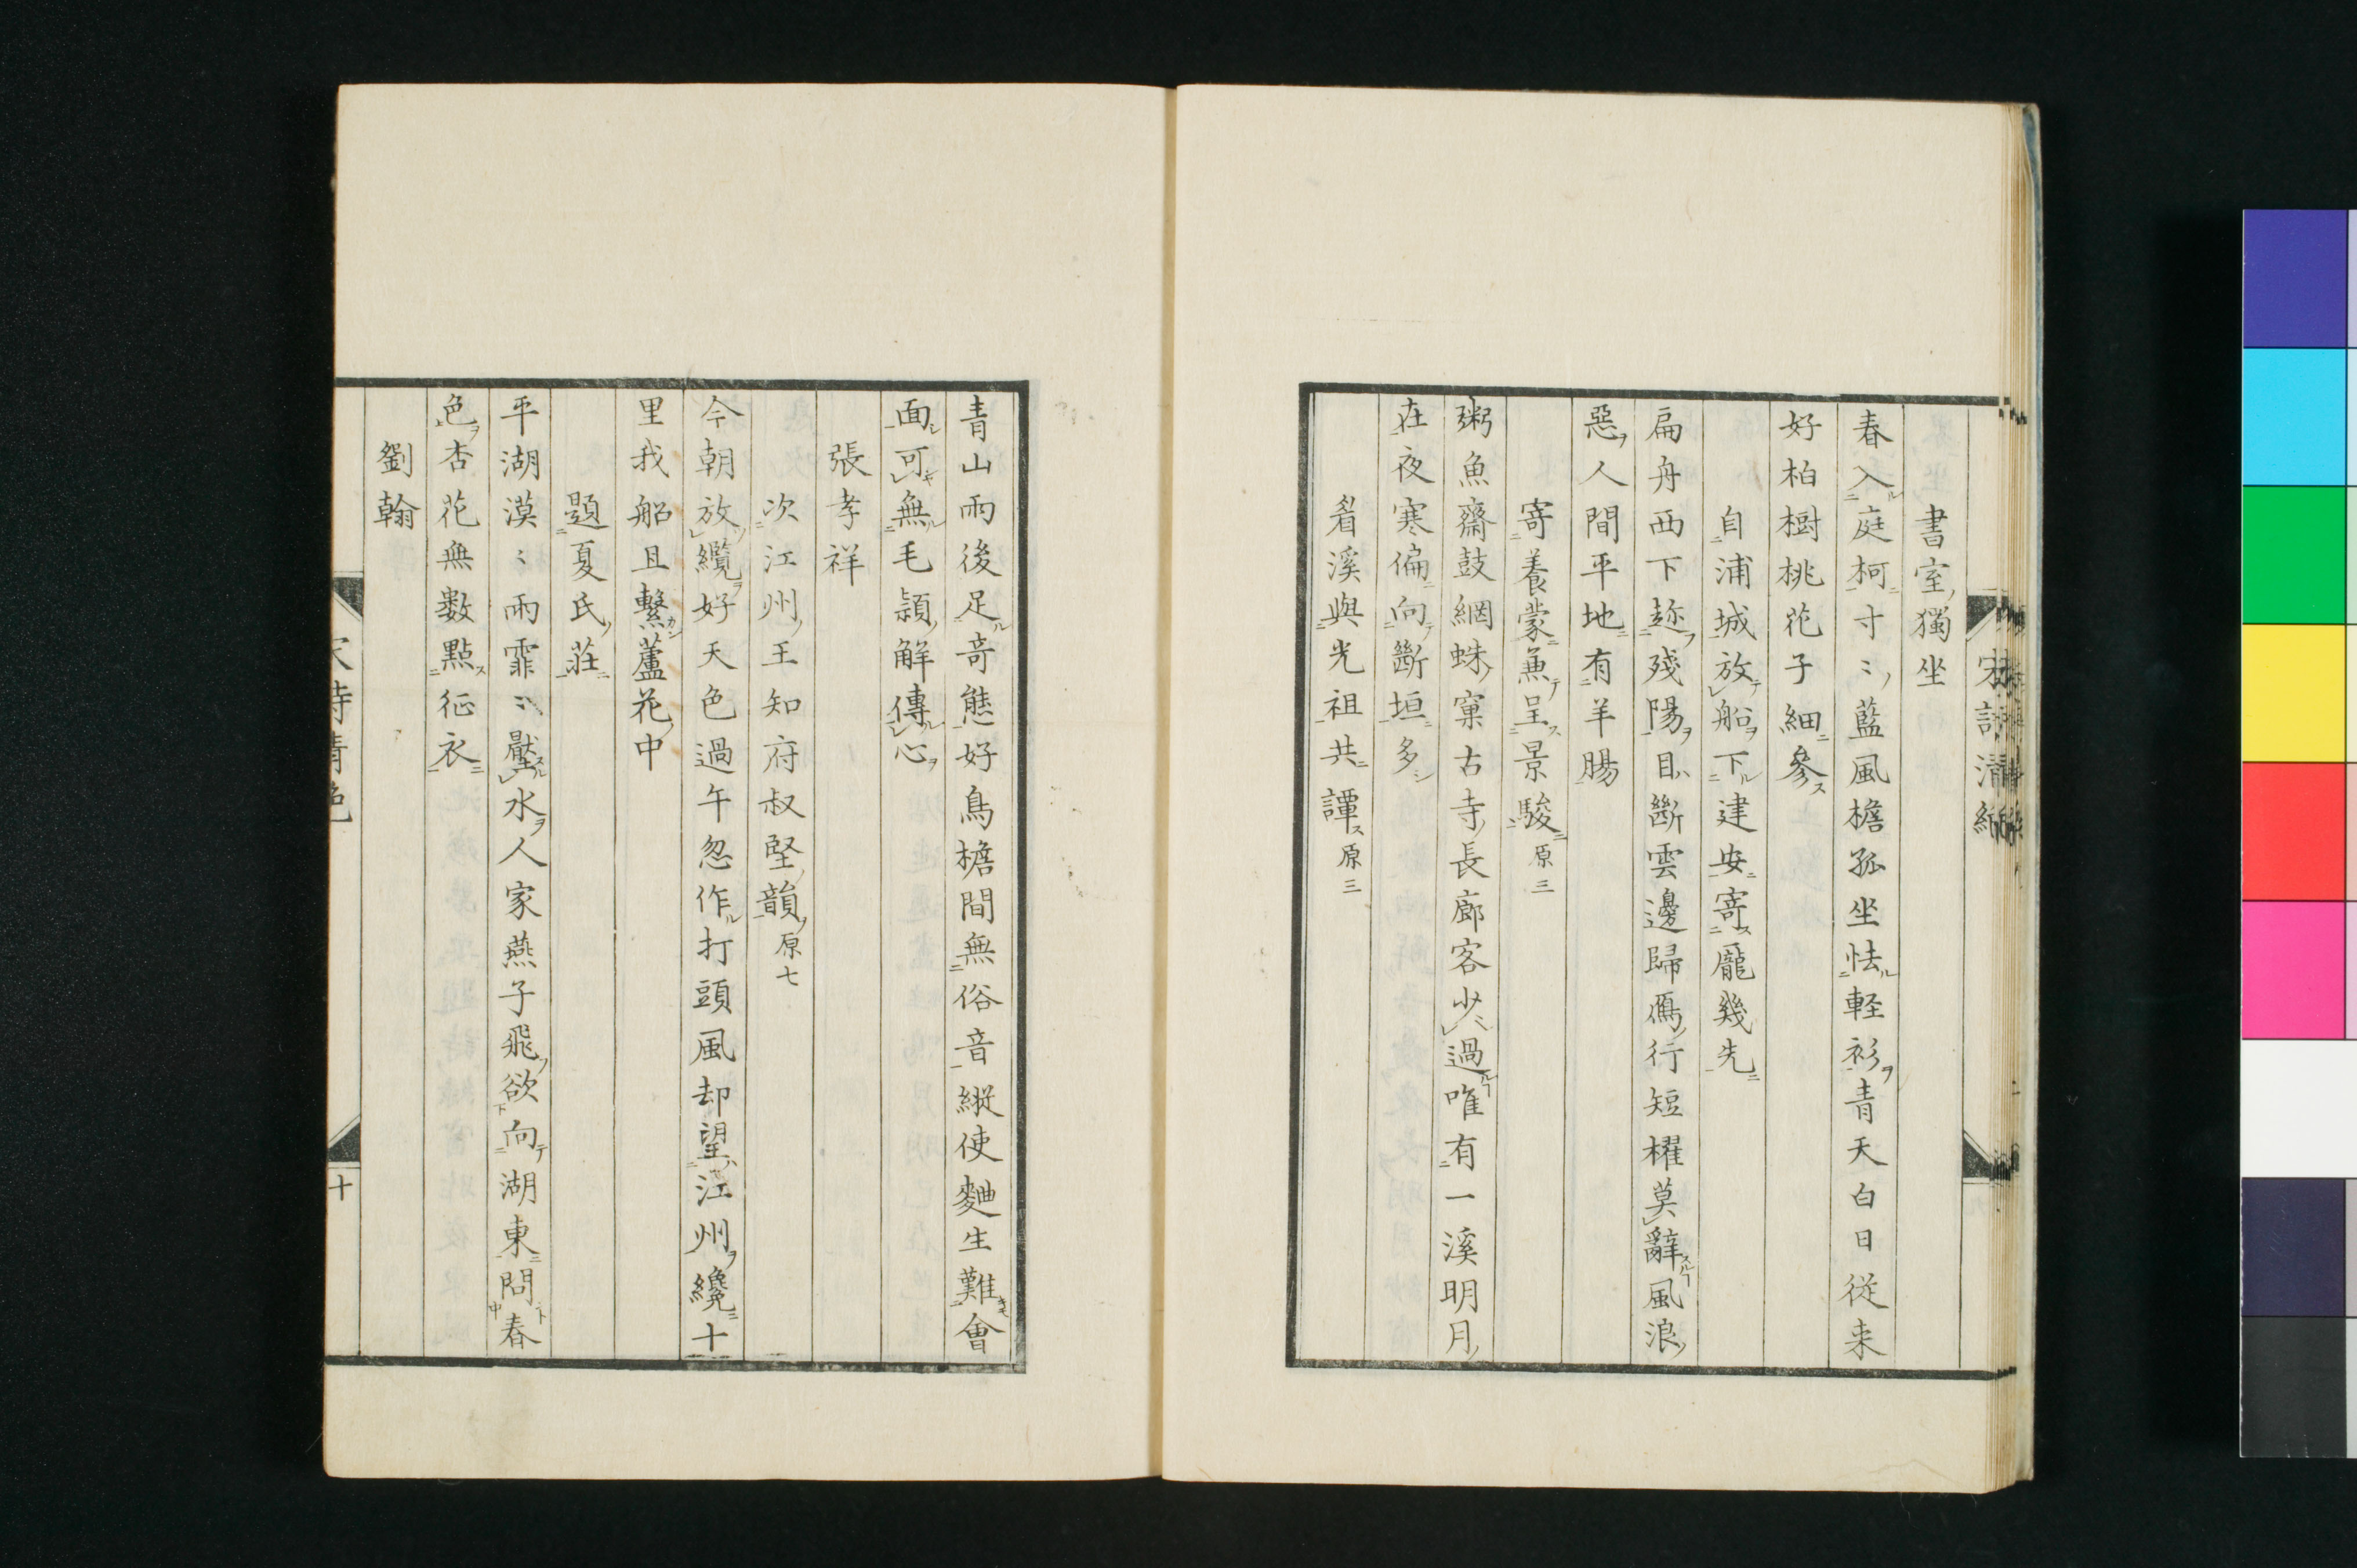 書室獨坐
春入庭柯寸〻藍風檐孤坐怯軽衫青天白日従来
好柏樹桃花子細參
自浦城放船下建安寄龐幾先
扁舟西下趂殘陽目斷雲邊歸鴈行短櫂莫辭風浪
惡人間平地有羊腸
寄養蒙兼呈景駿原三
粥魚齋鼓網蛛窠古寺長廊客少過唯有一溪明月
在夜寒偏向斷垣多
看溪與光祖共譚原三
青山雨後足奇態好鳥檐間無俗音縱使麯生難會
面可無毛頴解傳心
張孝祥
次江州王知府叔堅韻原七
今朝放纜好天色過午忽作打頭風却望江州纔十
里我船且繫蘆花中
題夏氏莊
平湖漠〻雨霏〻壓水人家燕子飛欲向湖東問春
色杏花無數點征衣
劉翰
十